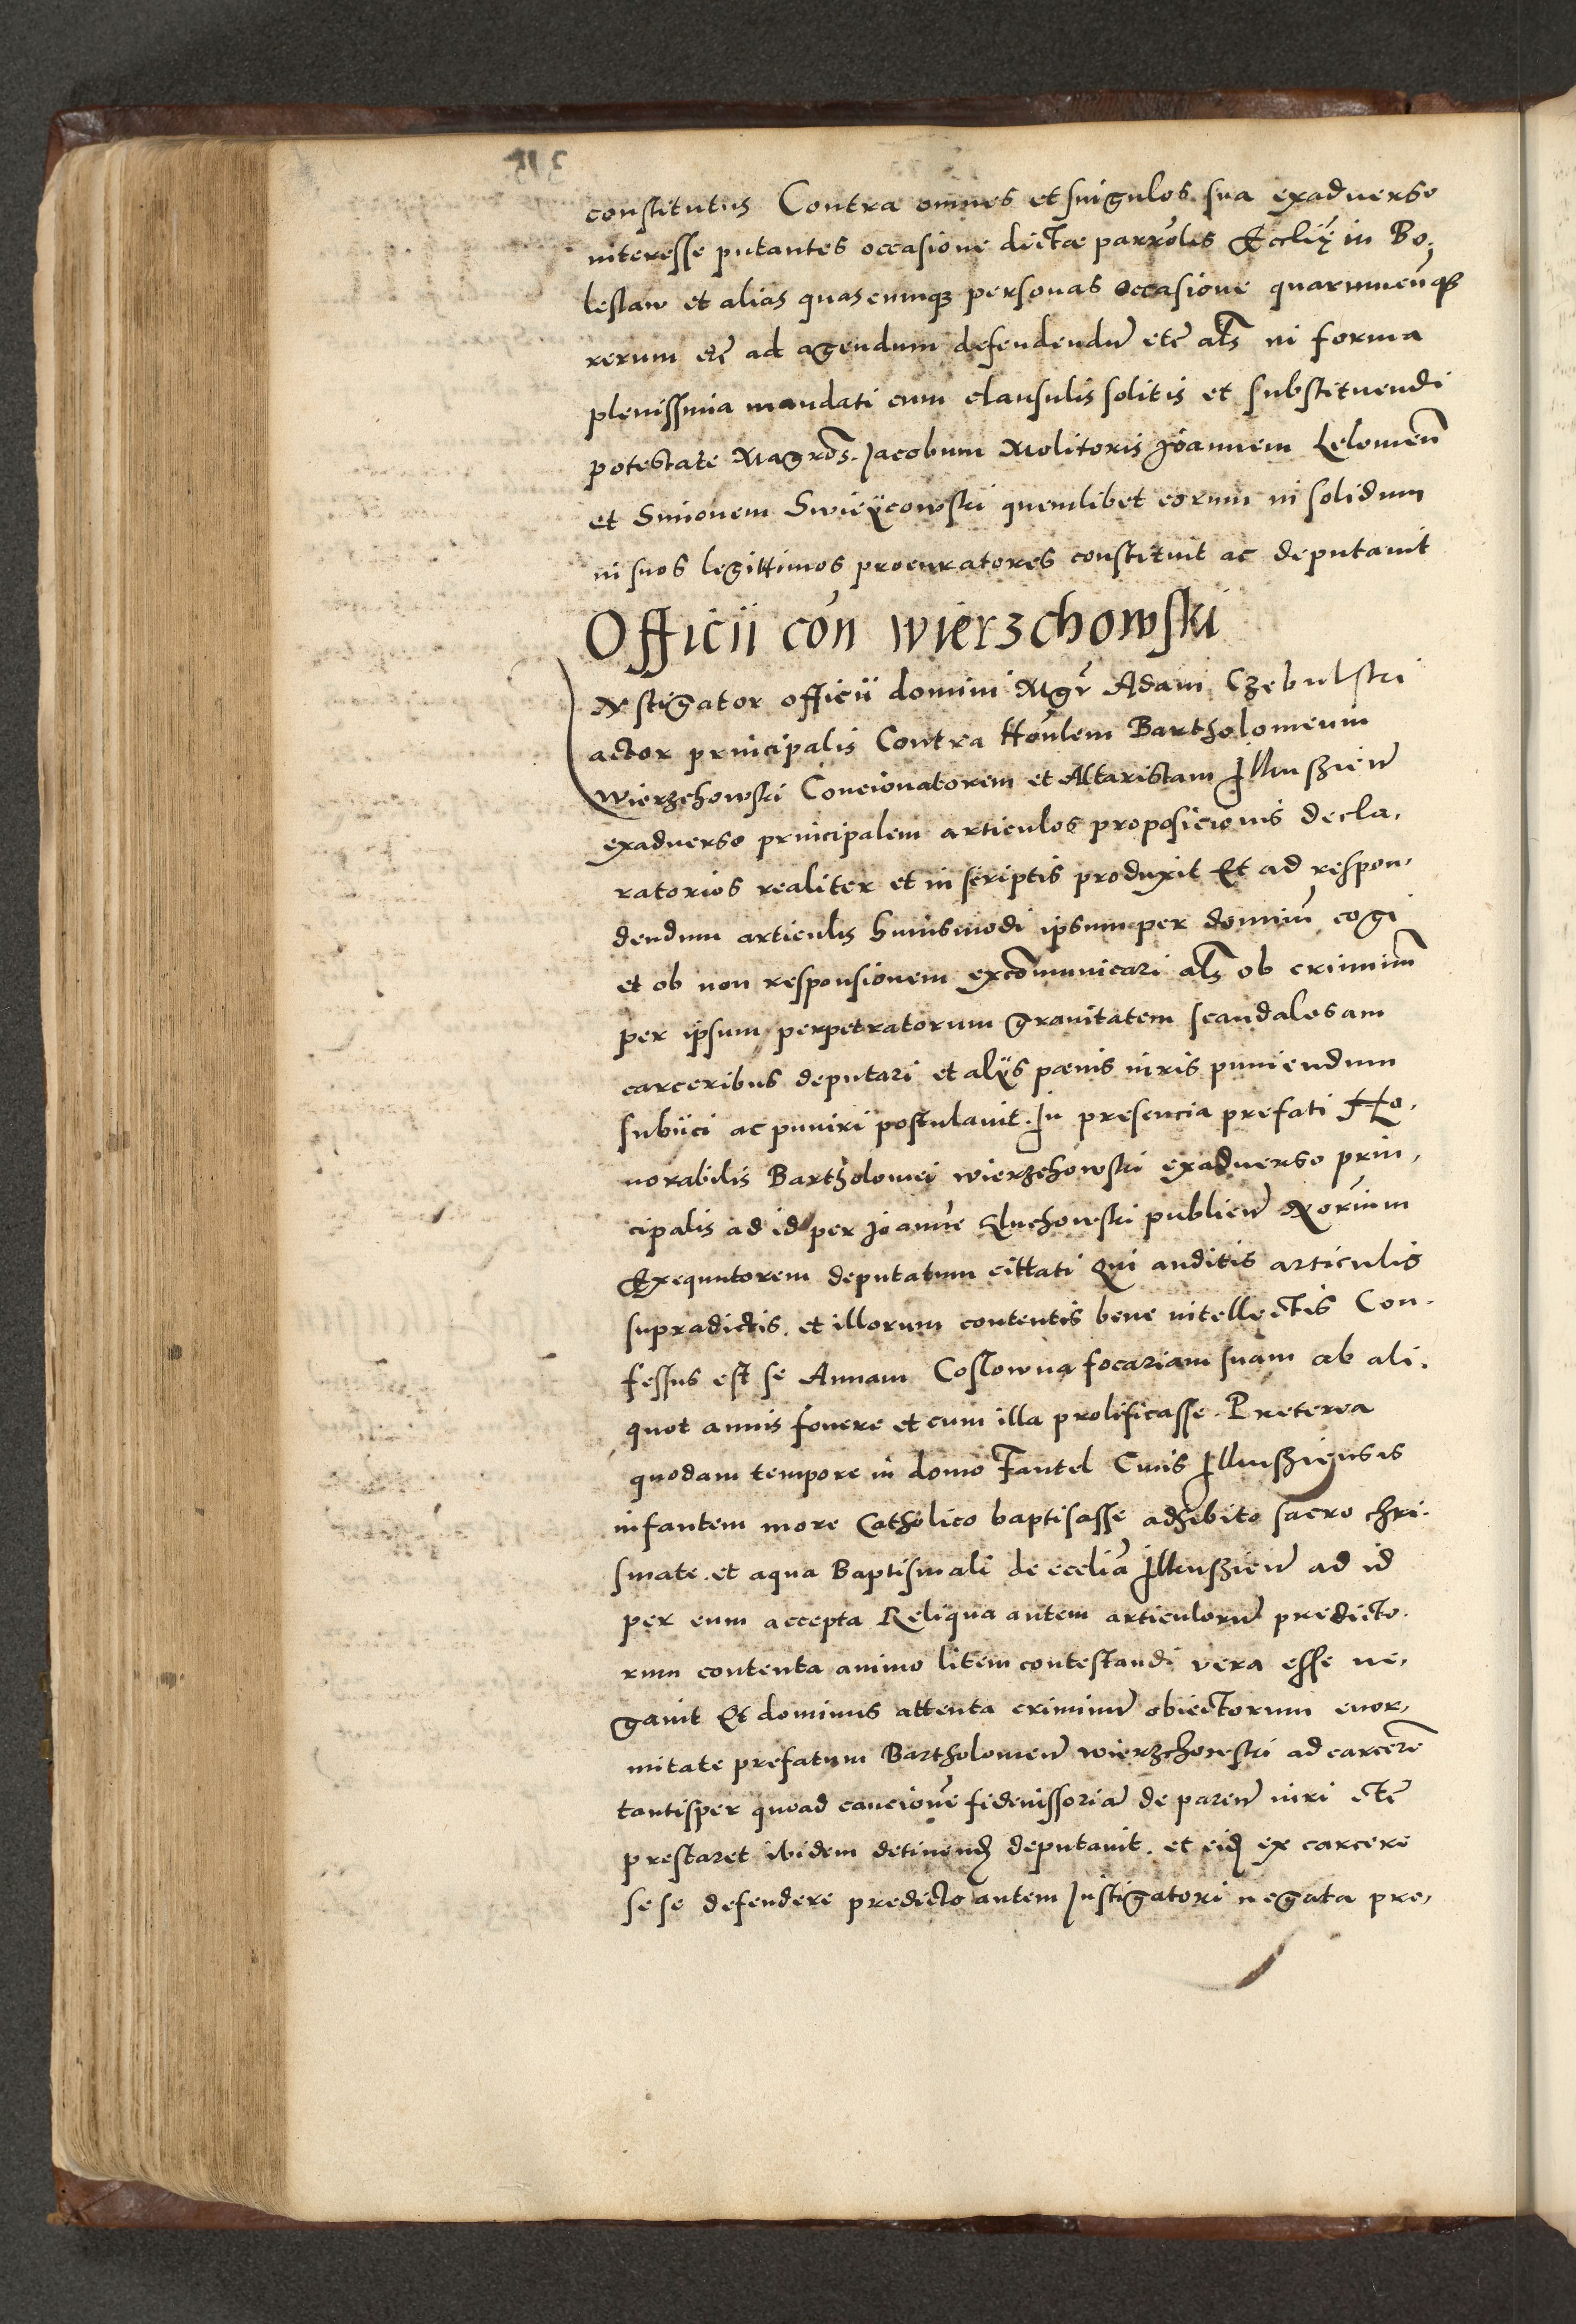 constitutus Contra omnes et singulos sua exaduerso
interesse putantes occasione dictae parrolis Ecclię in Bo,
leslaw et alias quascunqȝ personas occasione quarumcunqȝ
rerum etc̄ ad agendum defendendū etc̄ als̄ in forma
plenissima mandati cum clausulis solitis et substituendi
potestate Magros. Jacobum Molitoris Joannem Lelowień
et Simonem Swięcowski quemlibet eorum in solidum
in suos legittimos procuratores constituit ac deputauit
Officii cón wierzchowski
Instigator officii domini Mgr̄ Adam Czebulski
actor principalis Contra Hoūlem Bartholomeum
wierzchowski Concionatorem et Altaristam Jllkussień
exaduerso principalem articulos proposicionis decla,
ratorios realiter et in scriptis produxit Et ad respon,
dendum articulis huiusmodi ipsum per dominū cogi
et ob non responsionem excōmunicari als̄ ob criminū
per ipsum perpetratorum grauitatem scandalosam
carceribus deputari et alijs pœnis iuris puniendum
subiici ac puniri postulauit. In presencia prefati Ho,
norabilis Bartholomei wierzchowski exaduerso prin,
cipalis ad id per Joannē Luchowski publicū Noriūm
Exequutorem deputatum cittati Qui auditis articulis
supradictis. et illorum contentis bene intellectis Con.
fessus est se Annam Coslowna focariam suam ab ali.
quot annis fouere et cum illa prolificasse. Preterea
quodam tempore in domo Fantel Ciuis Jllkussiensis
infantem more Catholico baptisasse adhibito sacro chri.
smate. et aqua Baptismali de ecclīa Jllkussień ad id
per eum accepta Reliqua autem articulorū predicto.
rum contenta animo litem contestandi vera esse ne,
gauit Et dominus attenta criminū obiectorum enor,
mitate prefatum Bartholomeū wierzchowski ad carcerē
tantisper quoad caucionē fideiussoriā de parendo iuri etc̄
prestaret ibidem detinendū deputauit. et eidē ex carcere
sese defendere predicto autem Instigatori negata pre,